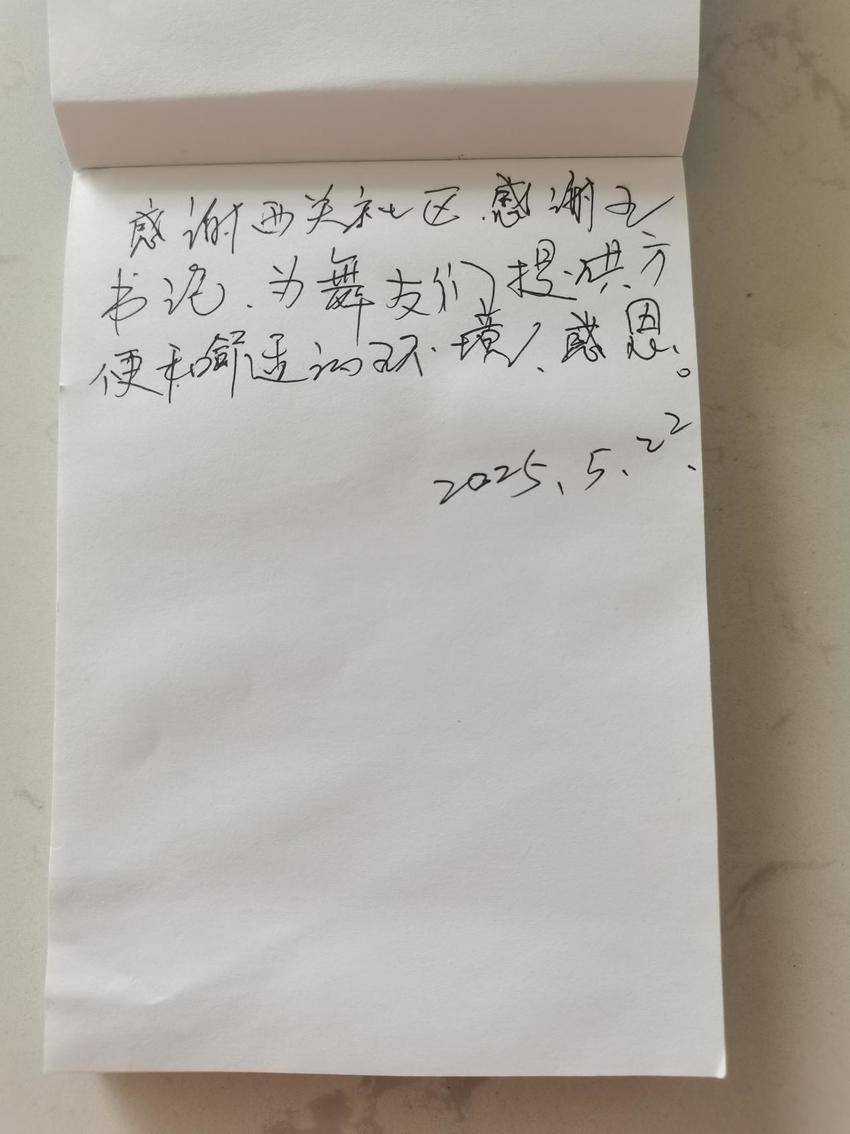 感谢西关社区.感谢王
书记.为舞友们提供方
便和舒适的环境、感恩。
2025、5、22、